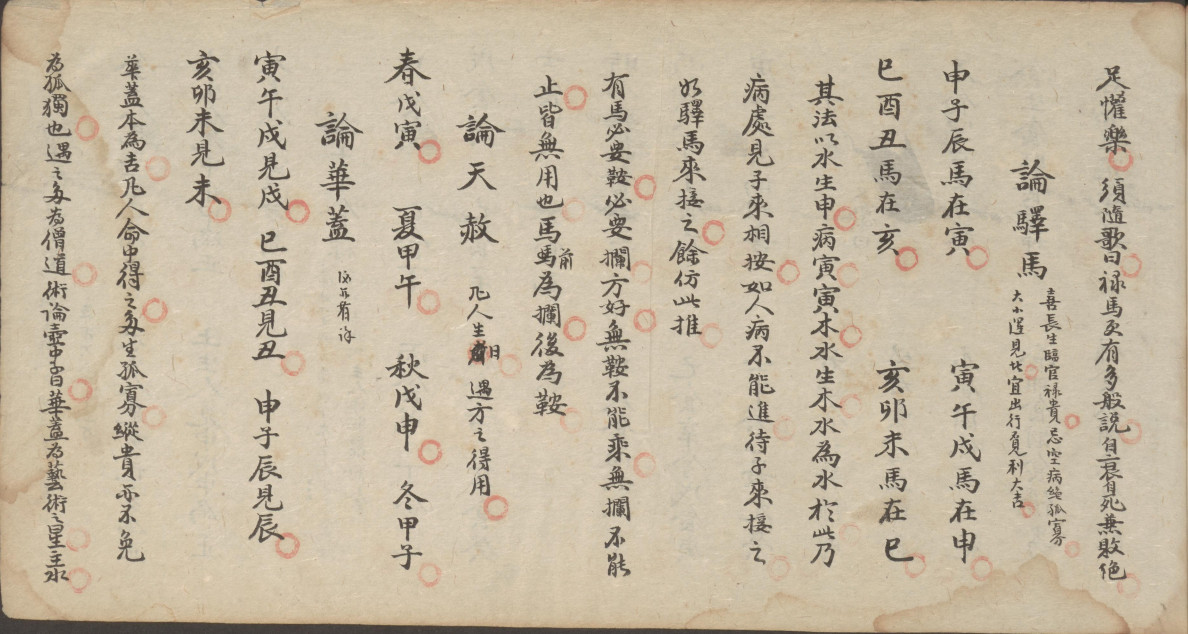 足懽樂 須隨歌曰禄馬更有多般説自衰自死兼敗絶
論驛馬
喜長生臨官禄貴忌空病絶孤寡
大小運見此宜出行覔利大吉
申子辰馬在寅 寅午戌馬在申
巳酉丑馬在亥 亥卯未馬在巳
其法以水生申病寅寅木水生木水為水於此乃
病處見子來相按如人病不能進待子來接之
如驛馬來接之餘仿此推
有馬必要鞍必要攔方好無鞍不能乘無攔不能
止皆無用也馬馬前為攔後為鞍
論天赦 凡人生日遇方之得用
春戊寅 夏甲午 秋戊申 冬甲子
論華蓋
寅午戌見戌 巳酉丑見丑 申子辰見辰
亥卯未見未
華蓋本為吉凡人命中得之多生孤寡縱貴亦不免
為孤獨也遇之多為僧道術論壺中子曰華蓋為藝術之星主水